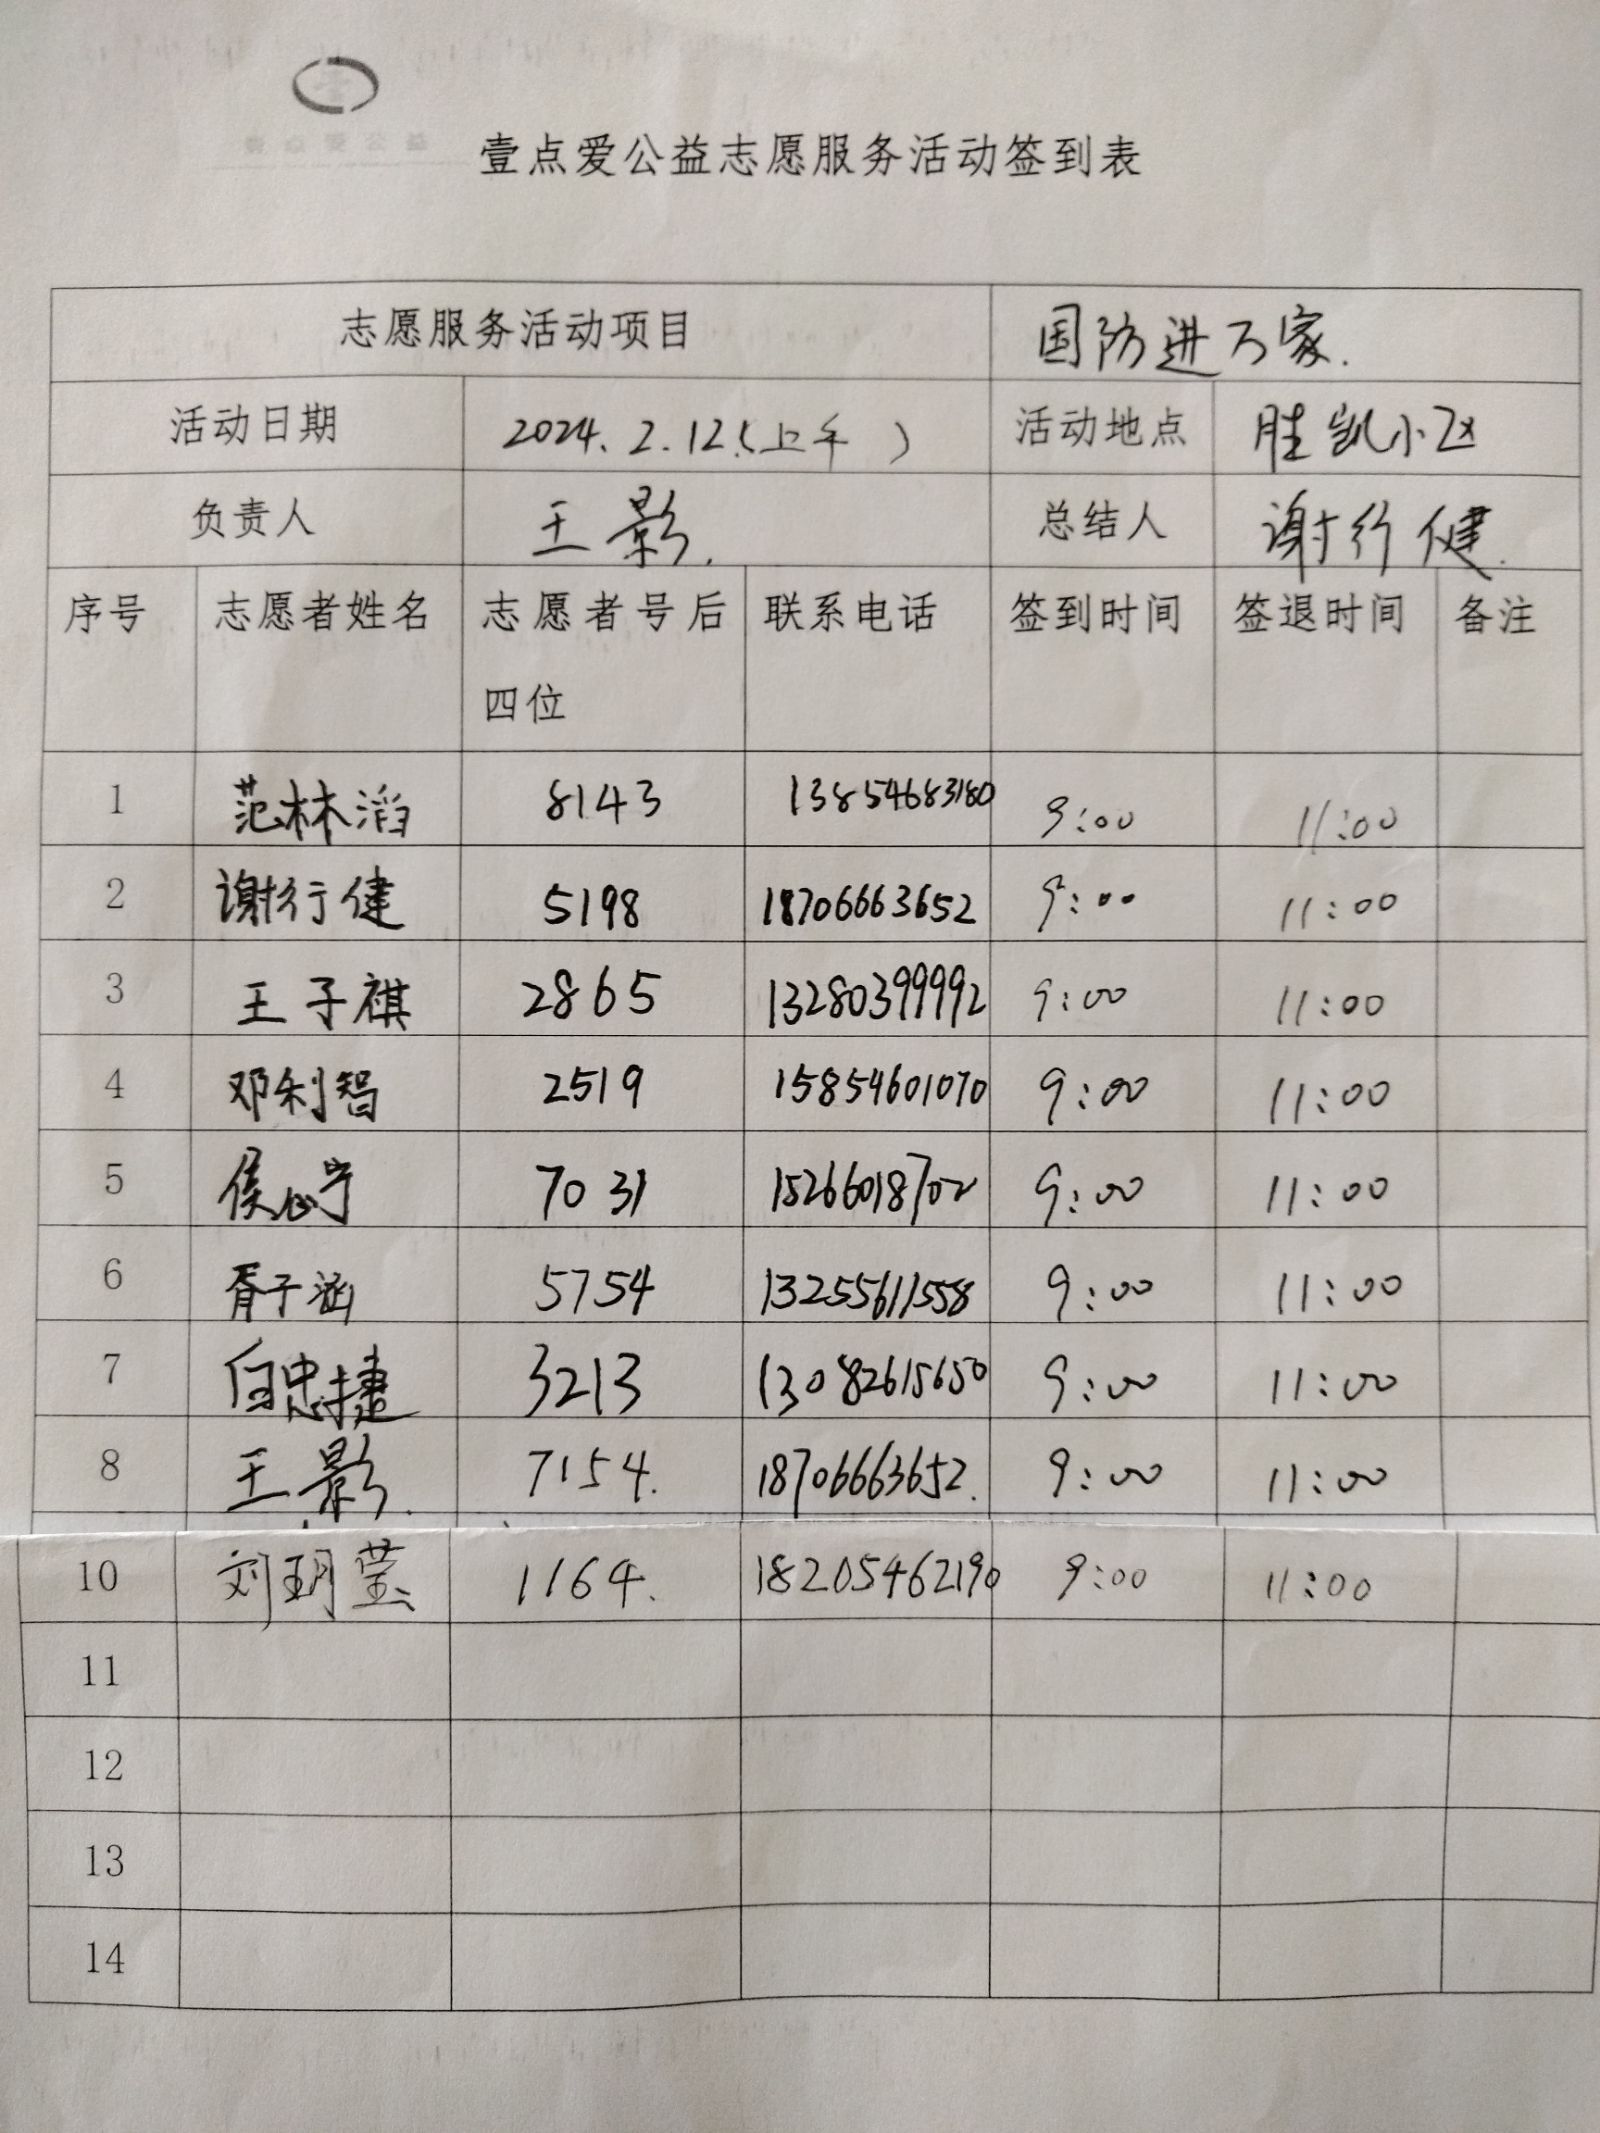 壹点爱公益
壹点爱公益志愿服务活动签到表
志愿服务活动项目 国防进万家.
活动日期 2024.2.12.(上午) 活动地点 胜凯小区
负责人 王影. 总结人 谢行健.
序号 志愿者姓名 志愿者号后 联系电话 签到时间 签退时间 备注
四位
1 范林滔 8143 13854683180 9:00 11:00
2 谢行健 5198 18706663652 9:00 11:00
3 王子祺 2865 13280399992 9:00 11:00
4 邓利智 2519 15854601070 9:00 11:00
5 侯心宁 7031 15266018702 9:00 11:00
6 胥子涵 5754 13255611558 9:00 11:00
7 白忠捷 3213 13082615650 9:00 11:00
8 王影. 7154. 18706663652. 9:00 11:00
10 刘玥莹 1164. 18205462190 9:00 11:00
11
12
13
14